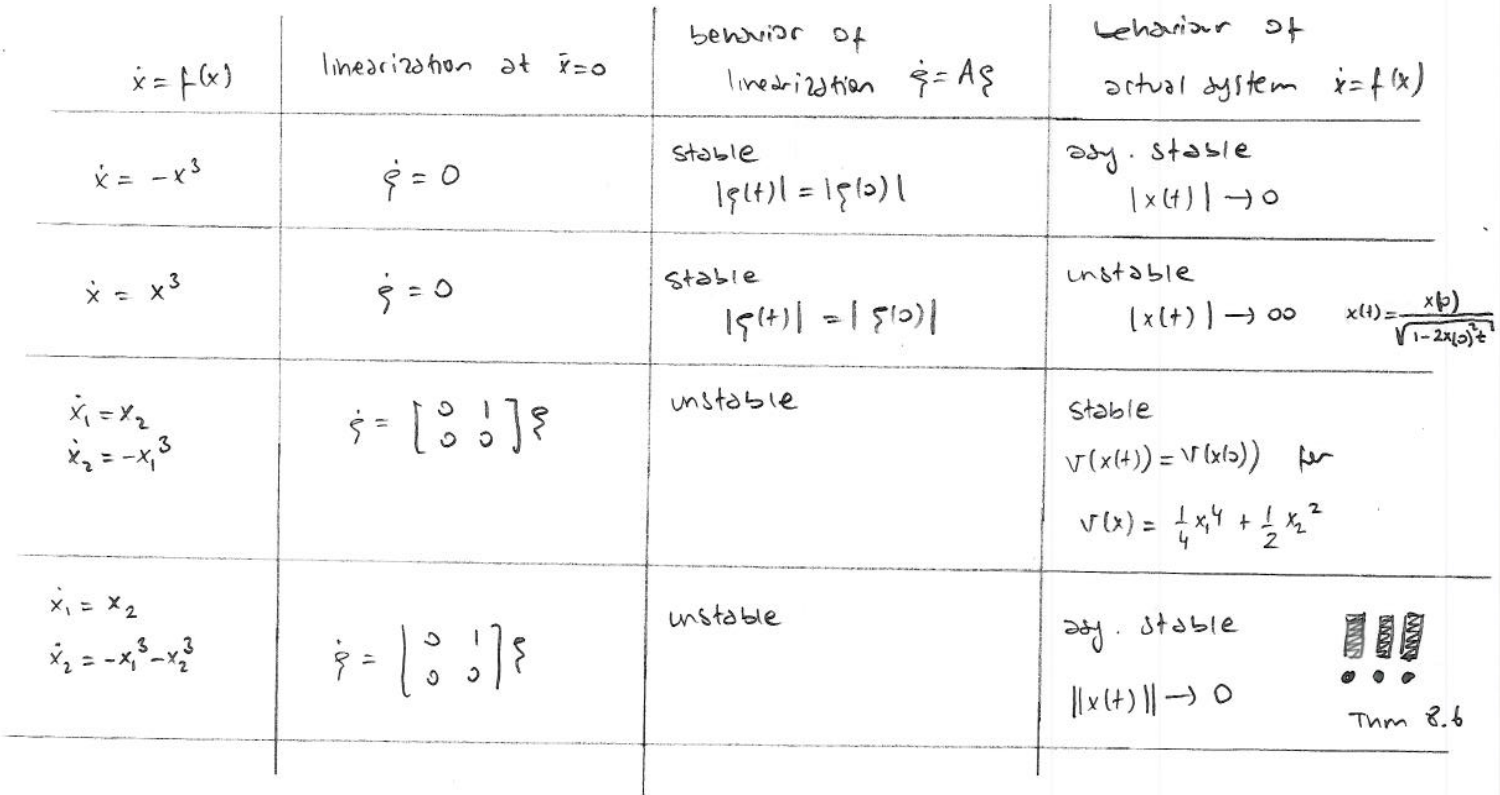 ẋ = f(x)
linearization at x̄=0
behavior of
linearization ξ̇ = Aξ
behaviour of
actual system ẋ = f(x)
ẋ = -x³
ξ̇ = 0
stable
|ξ(t)| = |ξ(0)|
asy. stable
|x(t)| → 0
ẋ = x³
ξ̇ = 0
stable
|ξ(t)| = |ξ(0)|
unstable
|x(t)| → ∞ x(t) = x(0) / √(1-2x(0)²t)
ẋ₁ = x₂
ẋ₂ = -x₁³
ξ̇ = [0 1; 0 0] ξ
unstable
stable
V(x(t)) = V(x(0)) for
V(x) = 1/4 x₁⁴ + 1/2 x₂²
ẋ₁ = x₂
ẋ₂ = -x₁³ - x₂³
ξ̇ = [0 1; 0 0] ξ
unstable
asy. stable
||x(t)|| → 0
!!!
Thm 8.6